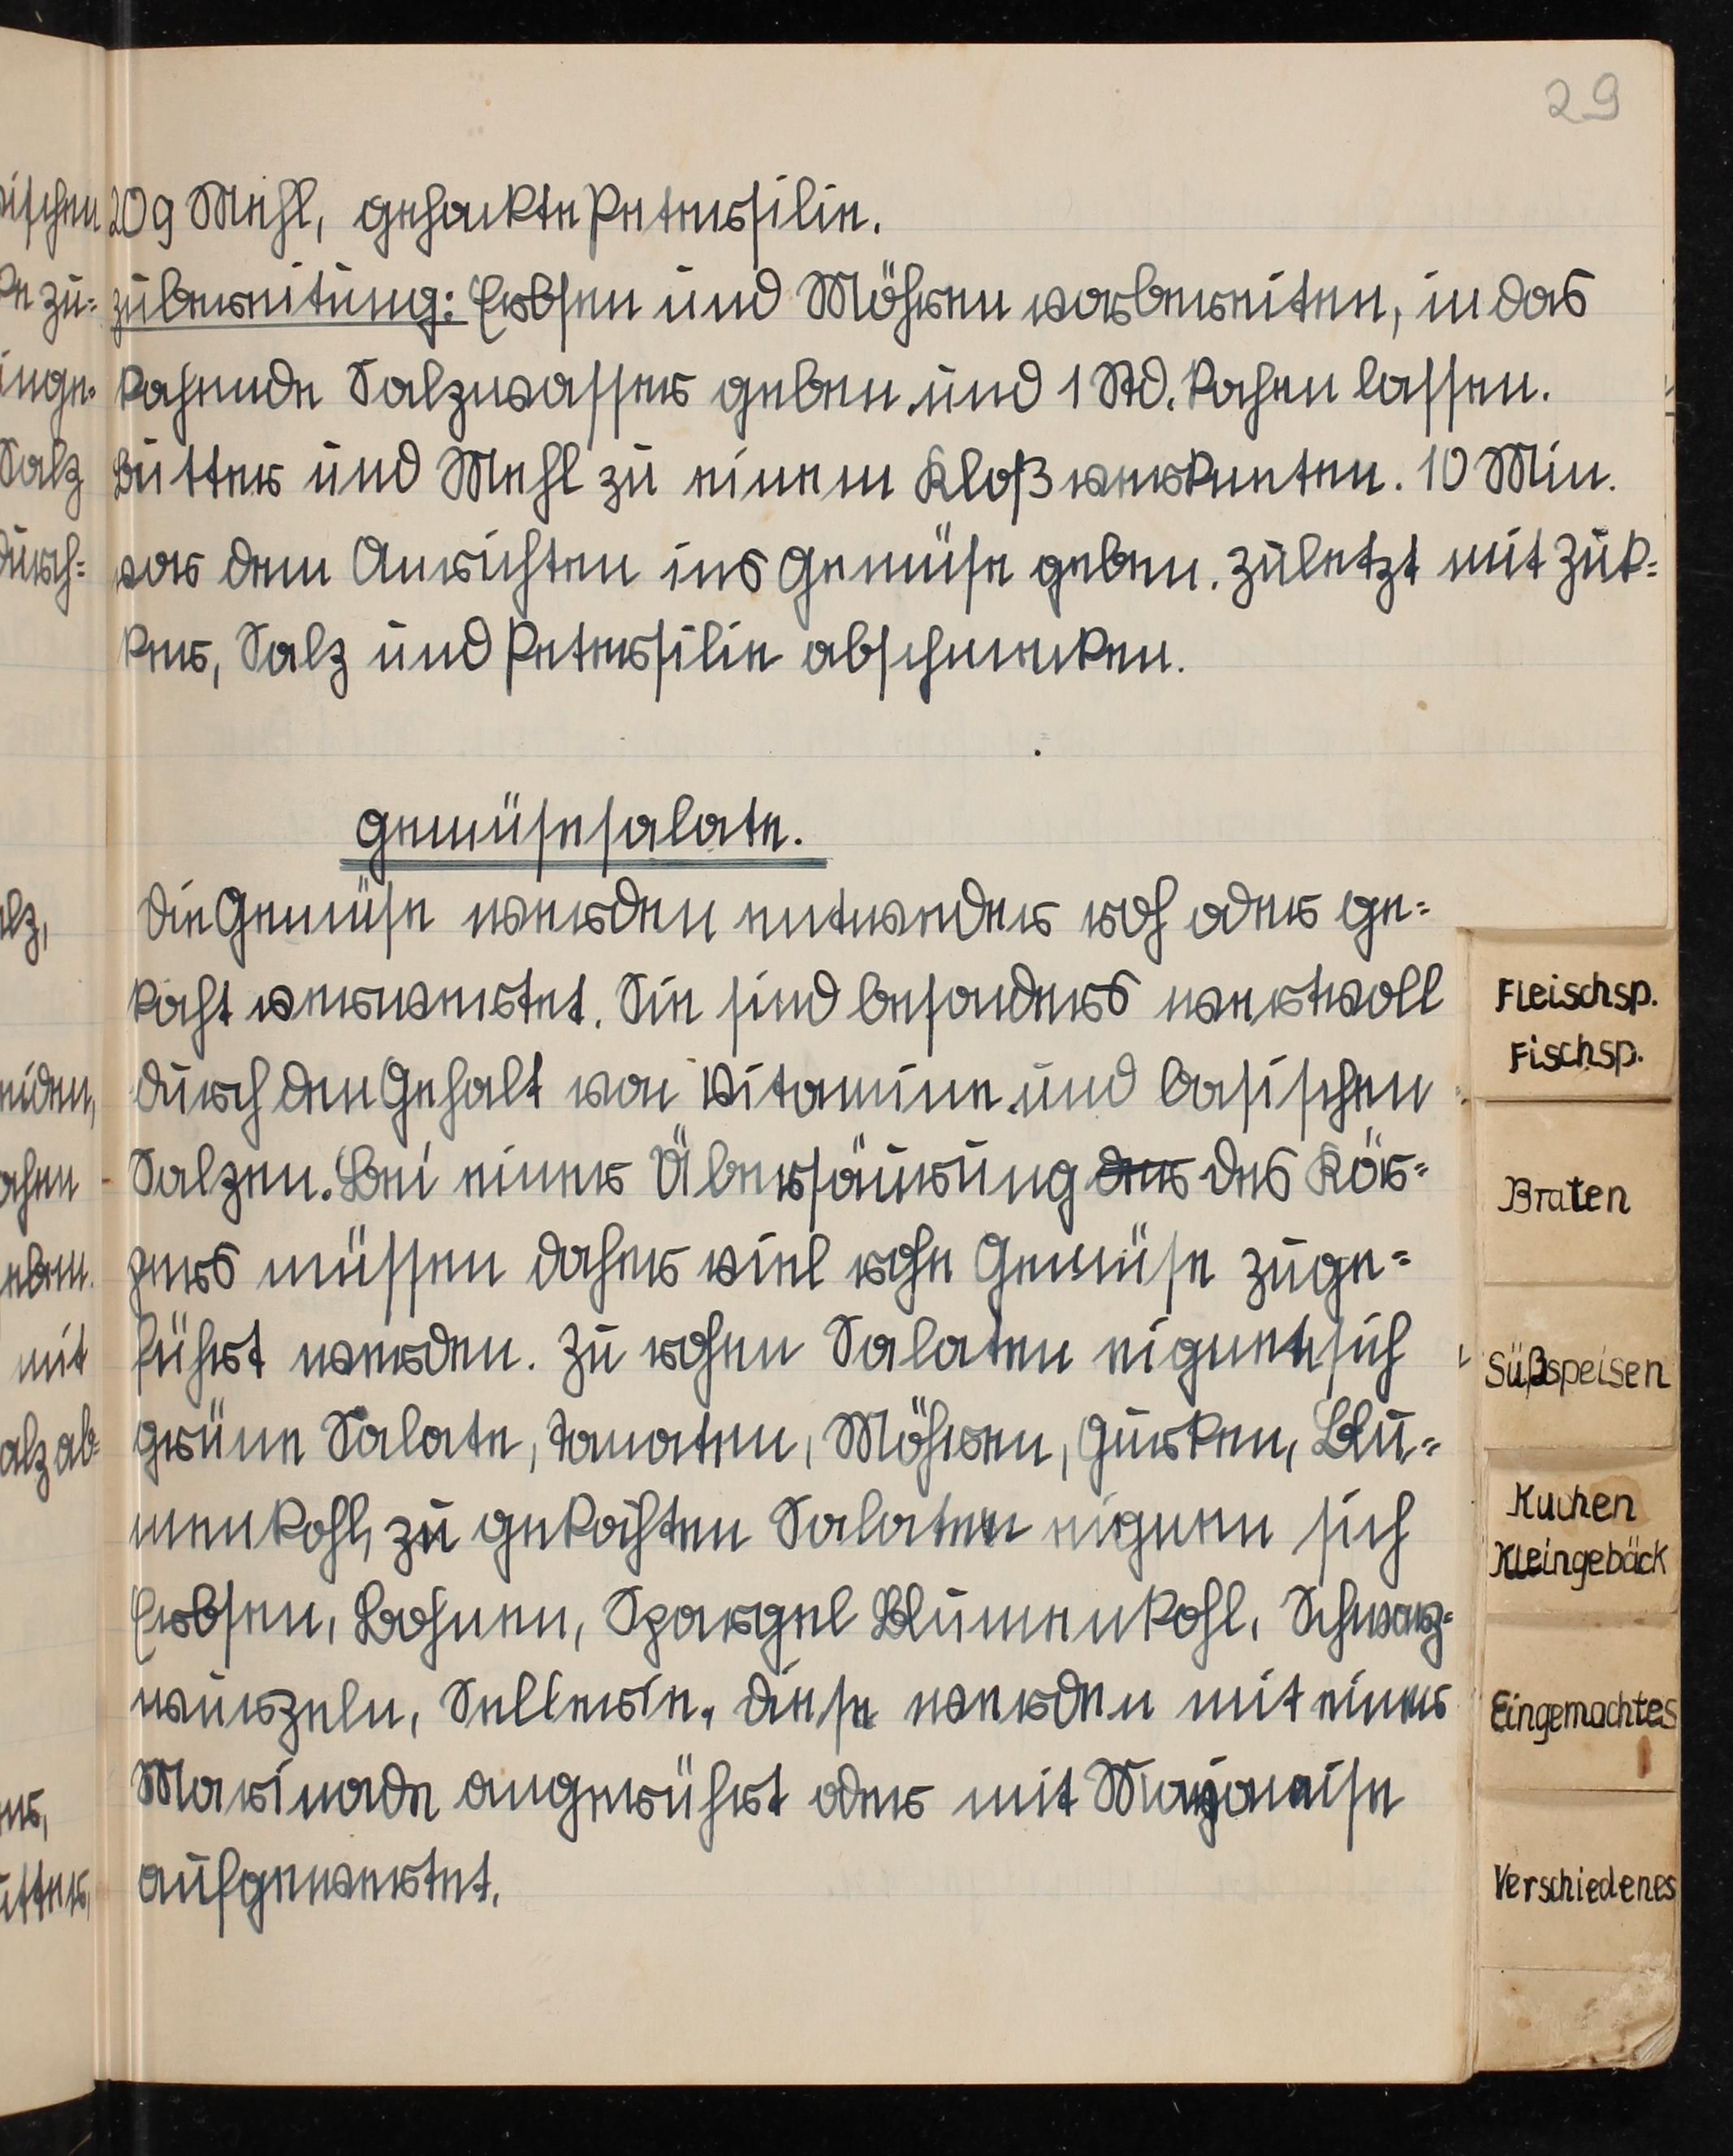 29
20g Mehl, gehackte Petersilie.
Zubereitung: Erbsen und Möhren vorbereiten, in das
kochende Salzwasser geben und 1 Std. kochen lassen.
Butter und Mehl zu einem Kloß verkneten. 10 Min.
vor dem Anrichten ins Gemüse geben. Zuletzt mit Zuk=
ker, Salz und Petersilie abschmecken.
Gemüsesalate.
Die Gemüse werden entweder roh oder ge=
kocht verwertet. Sie sind besonders wertvoll
durch den Gehalt von Vitamine und basischen
Salzen. Bei einer Übersäurung der des Kör=
pers müssen daher viel rohe Gemüse zuge=
führt werden. Zu rohen Salaten eignet sich
grüne Salate, Tomaten, Möhren, Gurken, Blu=
menkohl, zu gekochten Salaten eignen sich
Erbsen, Bohnen, Spargel Blumenkohl, Schwarz=
wurzeln, Sellerie. Diese werden mit einer
Marinade angerührt oder mit Majonaise
aufgewertet.
Fleischsp.
Fischsp.
Braten
Süßspeisen
Kuchen
Kleingebäck
Eingemachtes
Verschiedenes